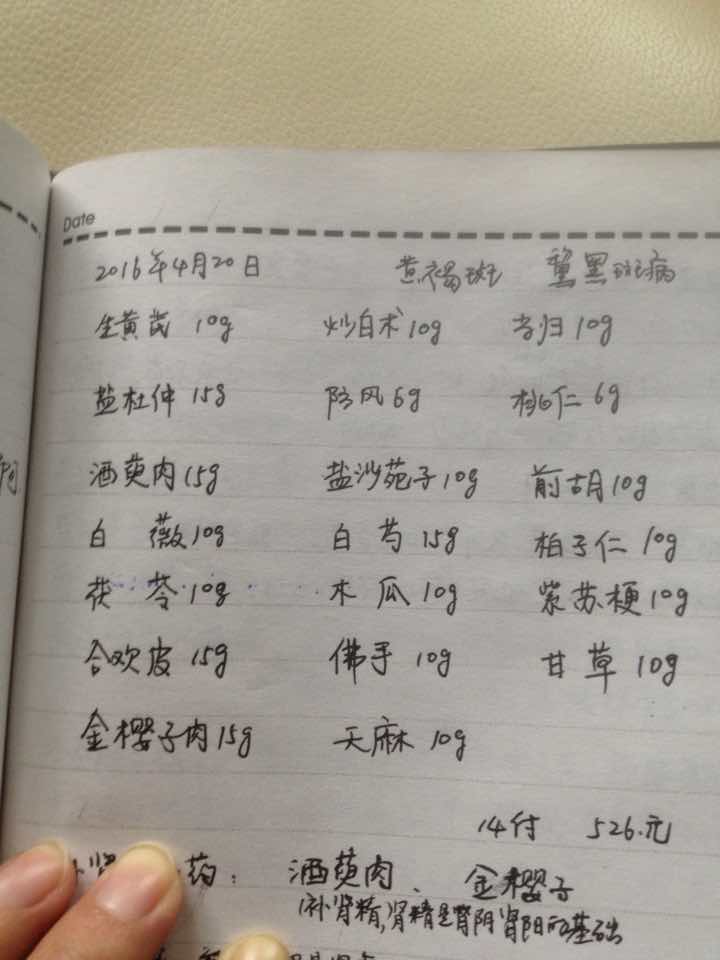 Date
2016年4月20日 黄褐斑 黧黑斑病
生黄芪 10g 炒白术 10g 当归 10g
盐杜仲 15g 防风 6g 桃仁 6g
酒萸肉 15g 盐沙苑子 10g 前胡 10g
白薇 10g 白芍 15g 柏子仁 10g
茯苓 10g 木瓜 10g 紫苏梗 10g
合欢皮 15g 佛手 10g 甘草 10g
金樱子肉 15g 天麻 10g
14付 526.元
补肾 药: 酒萸肉、金樱子
补肾精,肾精是肾阴肾阳的基础